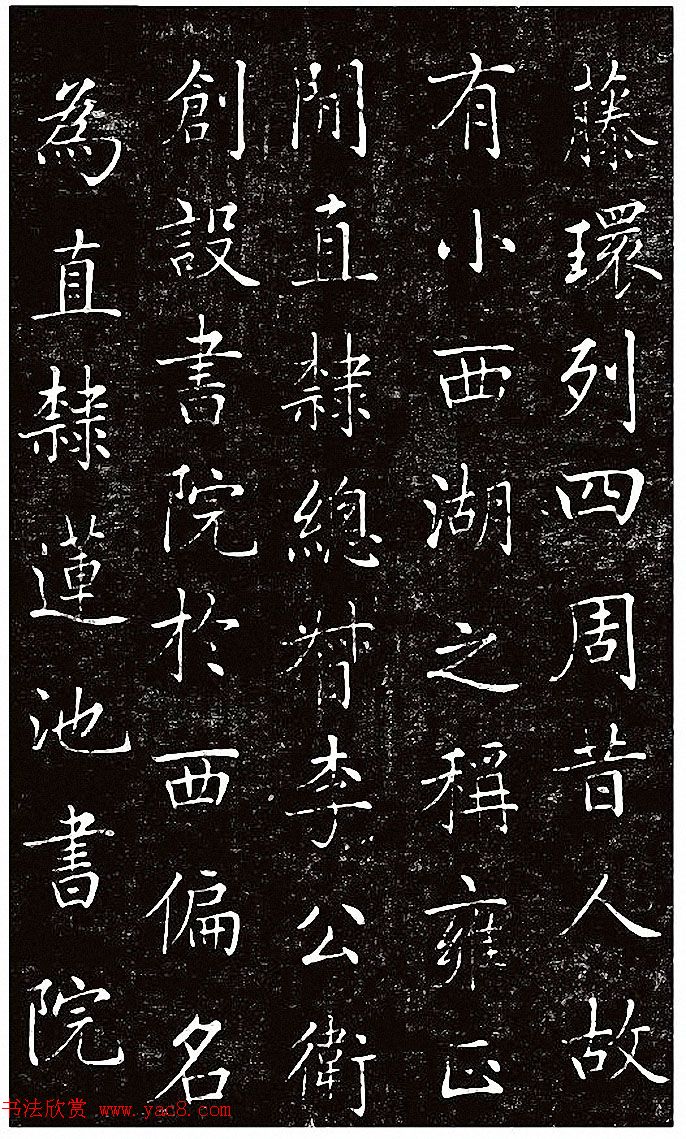 藤環列四周昔人故
有小西湖之稱雍正
閒直隸總督李公衛
創設書院於西偏名
為直隸蓮池書院
书法欣赏 www.yac8.com